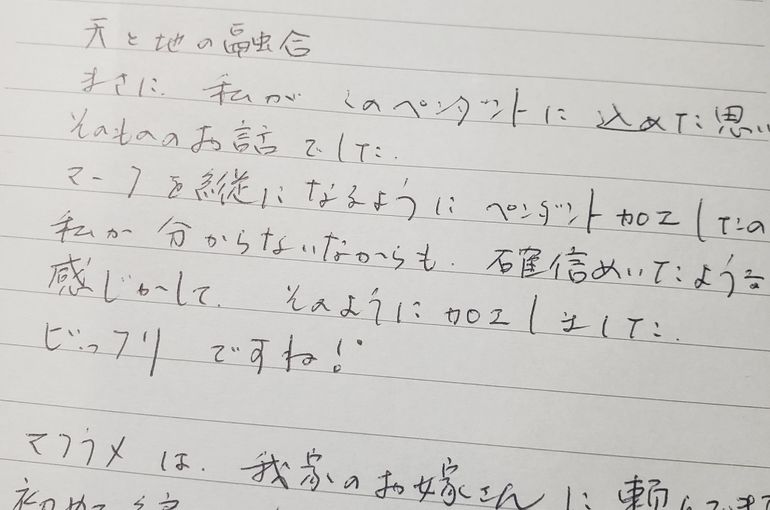 天と地の融合
まさに、私がこのペンダントに込めた思い
そのもののお話でした。
マークを縦になるようにペンダント加工したの
私が分からないながらも、確信めいたような
感じがして、そのように加工しました。
ビックリですね!
マクラメは、我家のお嫁さんに頼んで
初めて